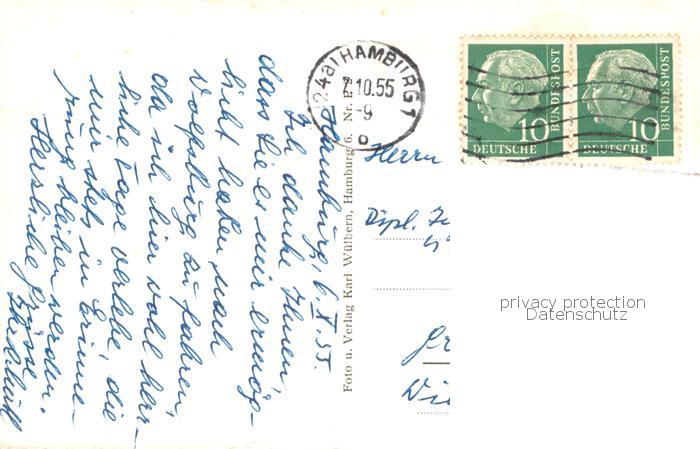 (24a) HAMBURG 1
7.10.55
-9
o
10
DEUTSCHE
BUNDESPOST
10
DEUTSCHE
BUNDESPOST
Hamburg, 6. X. 55.
Ich danke Ihnen,
dass Sie es mir ermög-
licht haben nach
Wolfsburg zu fahren,
da ich hier wohl herr-
liche Tage verlebe, die
mir stets in Erinne-
rung bleiben werden.
Herzliche Grüsse
Foto u. Verlag Karl Wülbern, Hamburg 6. Nr.
Herrn
Dipl. J
privacy protection
Datenschutz